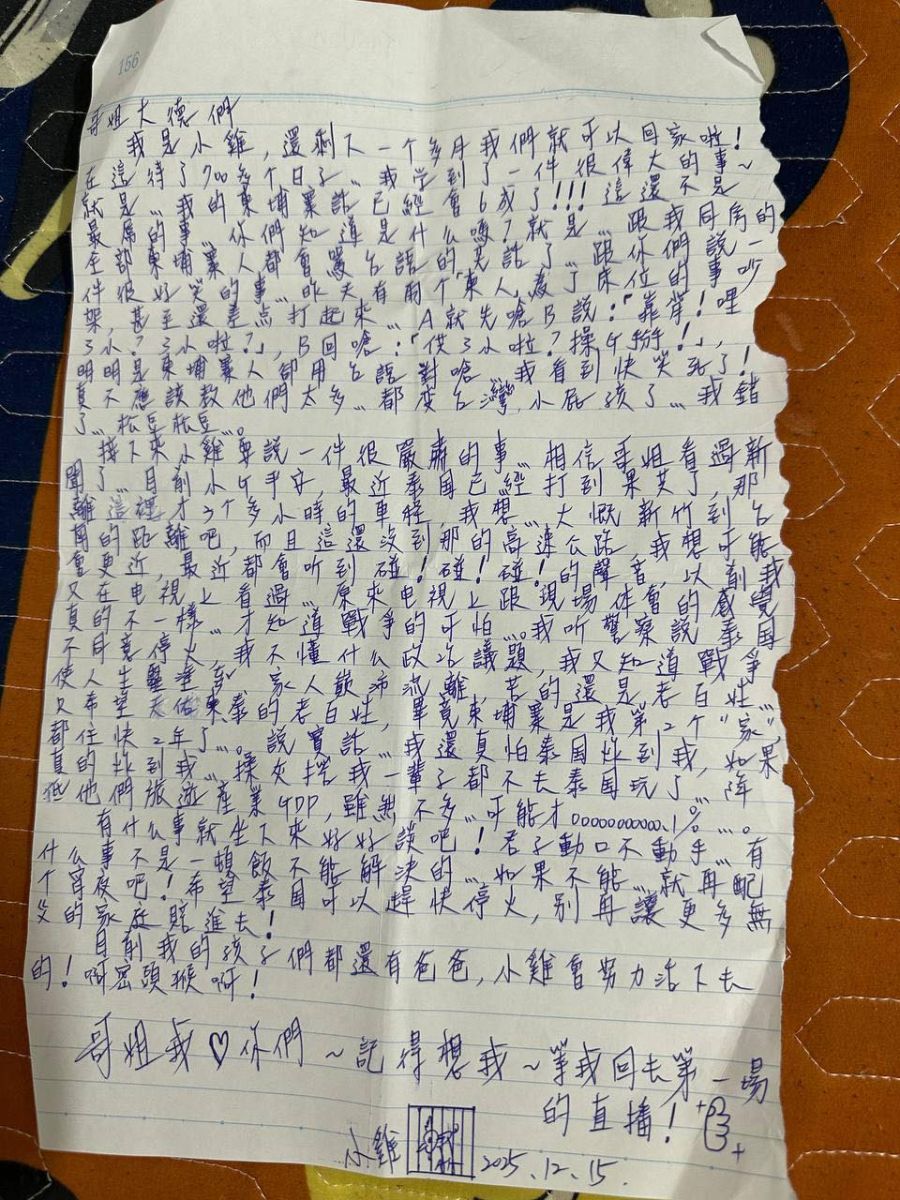 156
哥姐大德們
我是小雞，還剩下一个多月我們就可以回家啦！
在這待了700多个日子…我学到了一件很偉大的事~
就是…我的柬埔寨話已經會6成了!!!這還不是
最屌的事…你們知道是什么嗎？就是…跟我同房的
全部柬埔寨人都會罵台語的髒話了…跟你們說一
件很好笑的事…昨天有兩个「柬人」為了床位的事吵
架，甚至還差点打起來…A就先嗆B說：「靠背！哩
3小？3小啦？」，B回嗆：「供3小啦？操ㄐ掰！」，
明明是柬埔寨人卻用台語對嗆…我看到快笑死了！
真不應該教他們太多…都变台灣小屁孩了…我錯
了…松豆松豆…。
接下來小雞要說一件很嚴肅的事…相信哥姐看過新
聞了…目前小ㄐ平安，最近泰国已經打到菓芡了，那
離這裡才3个多小時的車程，我想…大慨新竹到台
南的路離吧，而且這還没到那的高速公路，我想可能
會更近，最近都會听到碰！碰！碰！的聲音，以前我
又在电視上看過…原來电視上跟現場体會的感覺
真的不一樣…才知道戰爭的可怕…。我听警察說泰国
不同意停火，我不懂什么政治議題，我又知道戰爭
使人生靈塗炭，家人顛沛流離，苦的還是老百姓…
又希望天佑柬泰的老百姓，畢竟柬埔寨是我第2个"家"，
都住快2年了…。說實話…我還真怕泰国炸到我，如果
真的炸到我…操灰搓我一輩子都不去泰国玩了…降
低他們旅遊產業GDP，雖然不多…可能才0000000000.1%…。
有什么事就坐下來好好談吧！君子動口不動手…有
什么事不是一頓飯不能解決的…如果不能…就再配
个宵夜吧！希望泰国可以趕快停火，別再讓更多無
的家庭賠進去！
目前我的孩子們都還有爸爸，小雞會努力活下去
的！啊密頭猴啊！
哥姐我♡你們~記得想我~等我回去第一場
的直播！
小雞 2025.12.15.